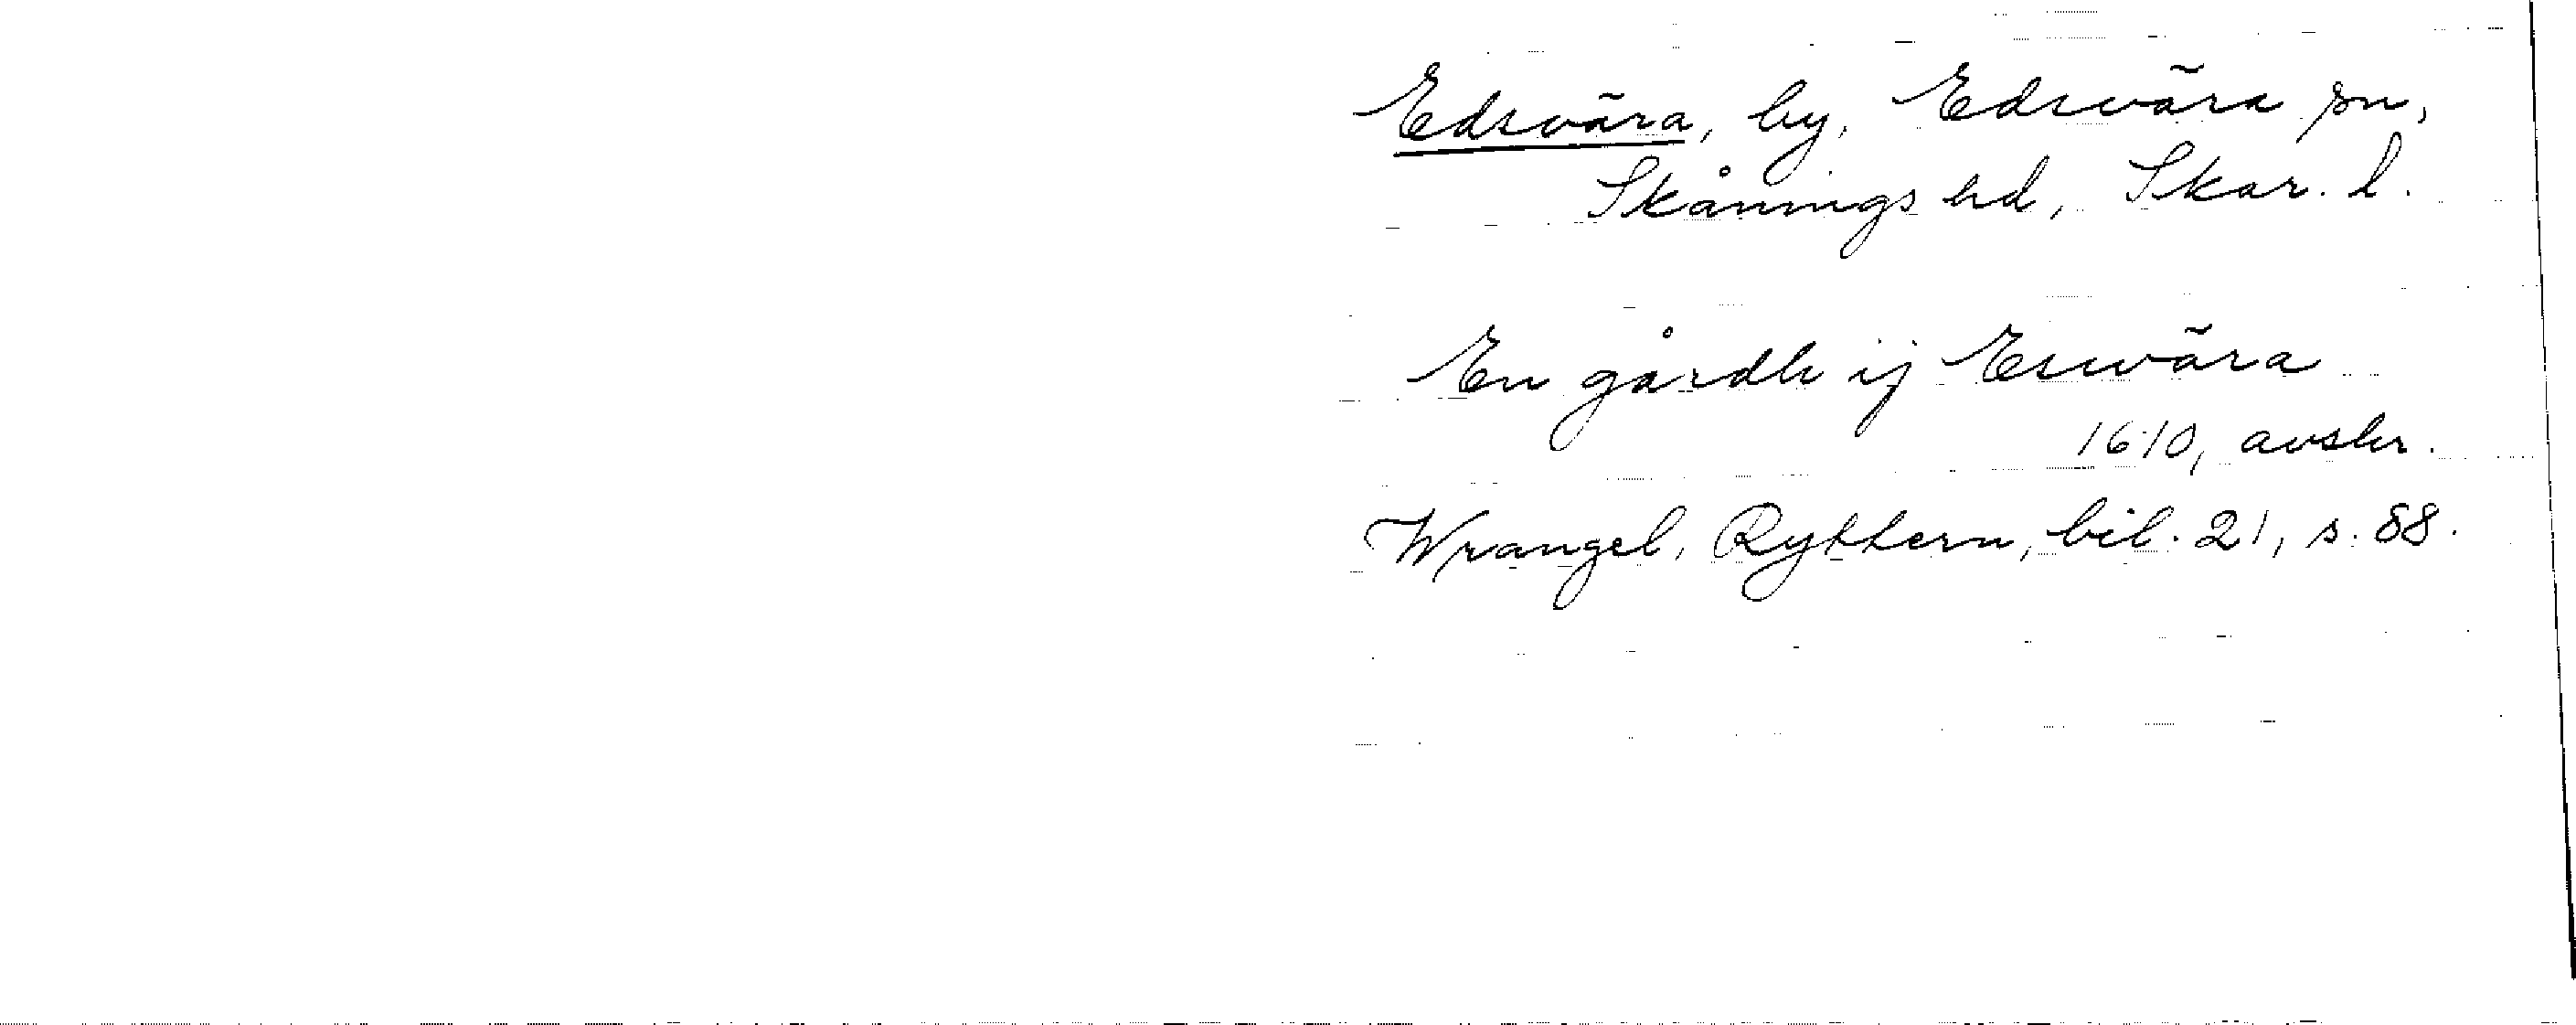 Edsvära, by, Edsvära sn,
Skånings hd, Skar. l.
En gårdh ij Eswära
1610, avskr.
Wrangel, Ryttern, bil. 21, s. 88.